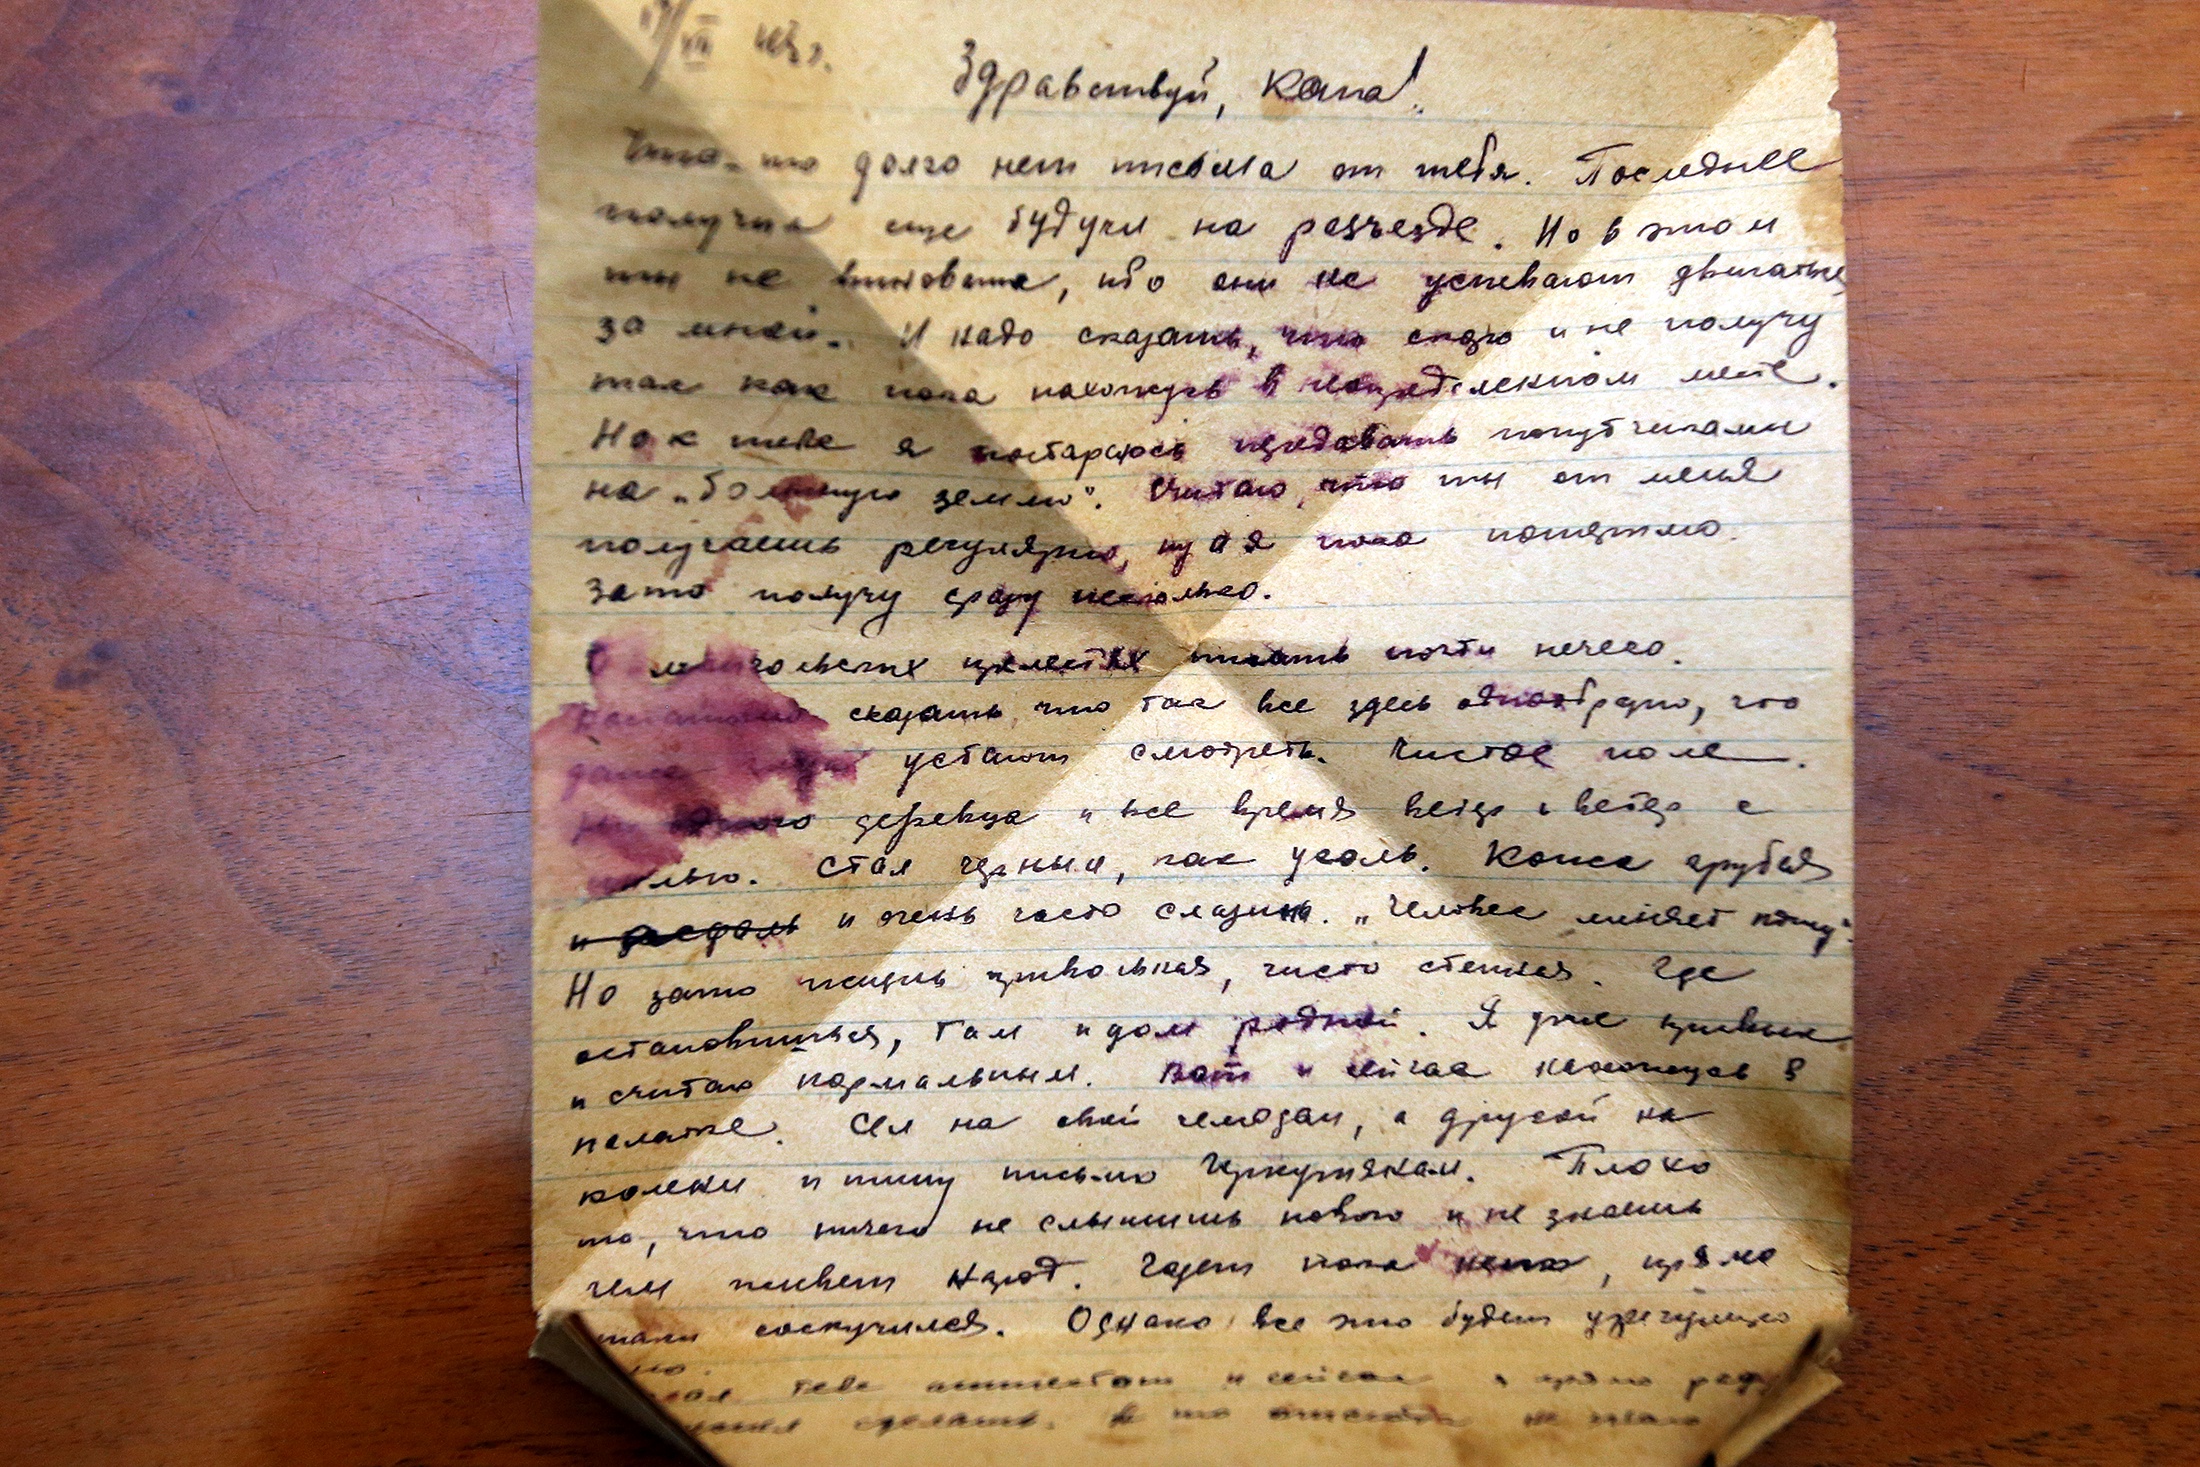 Здравствуй, Капа!
Что-то долго нет письма от тебя. Последнее
получил еще будучи на разъезде. Но в этом
ты не виновата, ибо они не успевают двигаться
за мной. И надо сказать, что скоро и не получу
так как пока нахожусь в неопределенном месте.
Но к тебе я постараюсь передавать попутчиками
на "большую землю". Считаю, что ты от меня
получаешь регулярно, ну а я пока потерплю.
Зато получу сразу несколько.
О прелестях писать почти нечего.
сказать, что так все здесь однообразно, что
даже глаза устают смотреть. Чистое поле.
Ни одного деревца и все время ветер и ветер с
пылью. Стал черный, как уголь. Кожа грубая
и очень часто слазит. "Человек меняет кожу".
Но зато жизнь привольная, чисто степная. Где
остановишься, там и дом родной. Я уже привык
и считаю нормальным. Вот и сейчас нахожусь в
палатке. Сел на свой чемодан, а другой на
колени и пишу письмо. Плохо
то, что ничего не слышишь нового и не знаешь
чем живет народ. Газет пока нет, прямо
таки соскучился. Однако все это будет урегулиро
но.
тебе и сейчас
сделать. не знаю